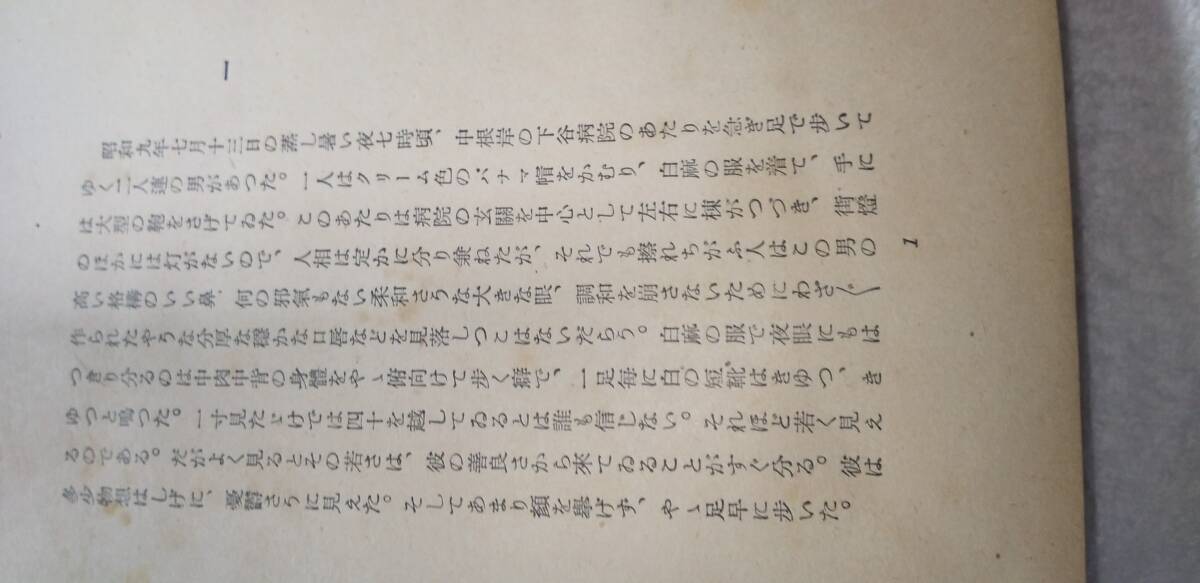 一
昭和九年七月十三日の蒸し暑い夜七時頃、中根岸の下谷病院のあたりを急ぎ足で歩いて
ゆく二人連の男があつた。一人はクリーム色のパナマ帽をかむり、白麻の服を着て、手に
は大型の鞄をさげてゐた。このあたりは病院の玄關を中心として左右に棟がつづき、街燈
のほかには灯がないので、人相は定かに分り兼ねたが、それでも擦れちがふ人はこの男の
高い格構のいい鼻、何の邪氣もない柔和さうな大きな眼、調和を崩さないためにわざ〱
作られたやうな分厚な穩かな口唇などを見落しつこはないだらう。白麻の服で夜眼にもは
つきり分るのは中肉中背の身體をやゝ俯向けて歩く癖で、一足毎に白の短靴はきゆつ、き
ゆつと鳴つた。一寸見たゞけでは四十を越してゐるとは誰も信じない。それほど若く見え
るのである。だがよく見るとその若さは、彼の善良さから來てゐることがすぐ分る。彼は
多少物想はしげに、憂鬱さうに見えた。そしてあまり顏を擧げず、やゝ足早に歩いた。
1